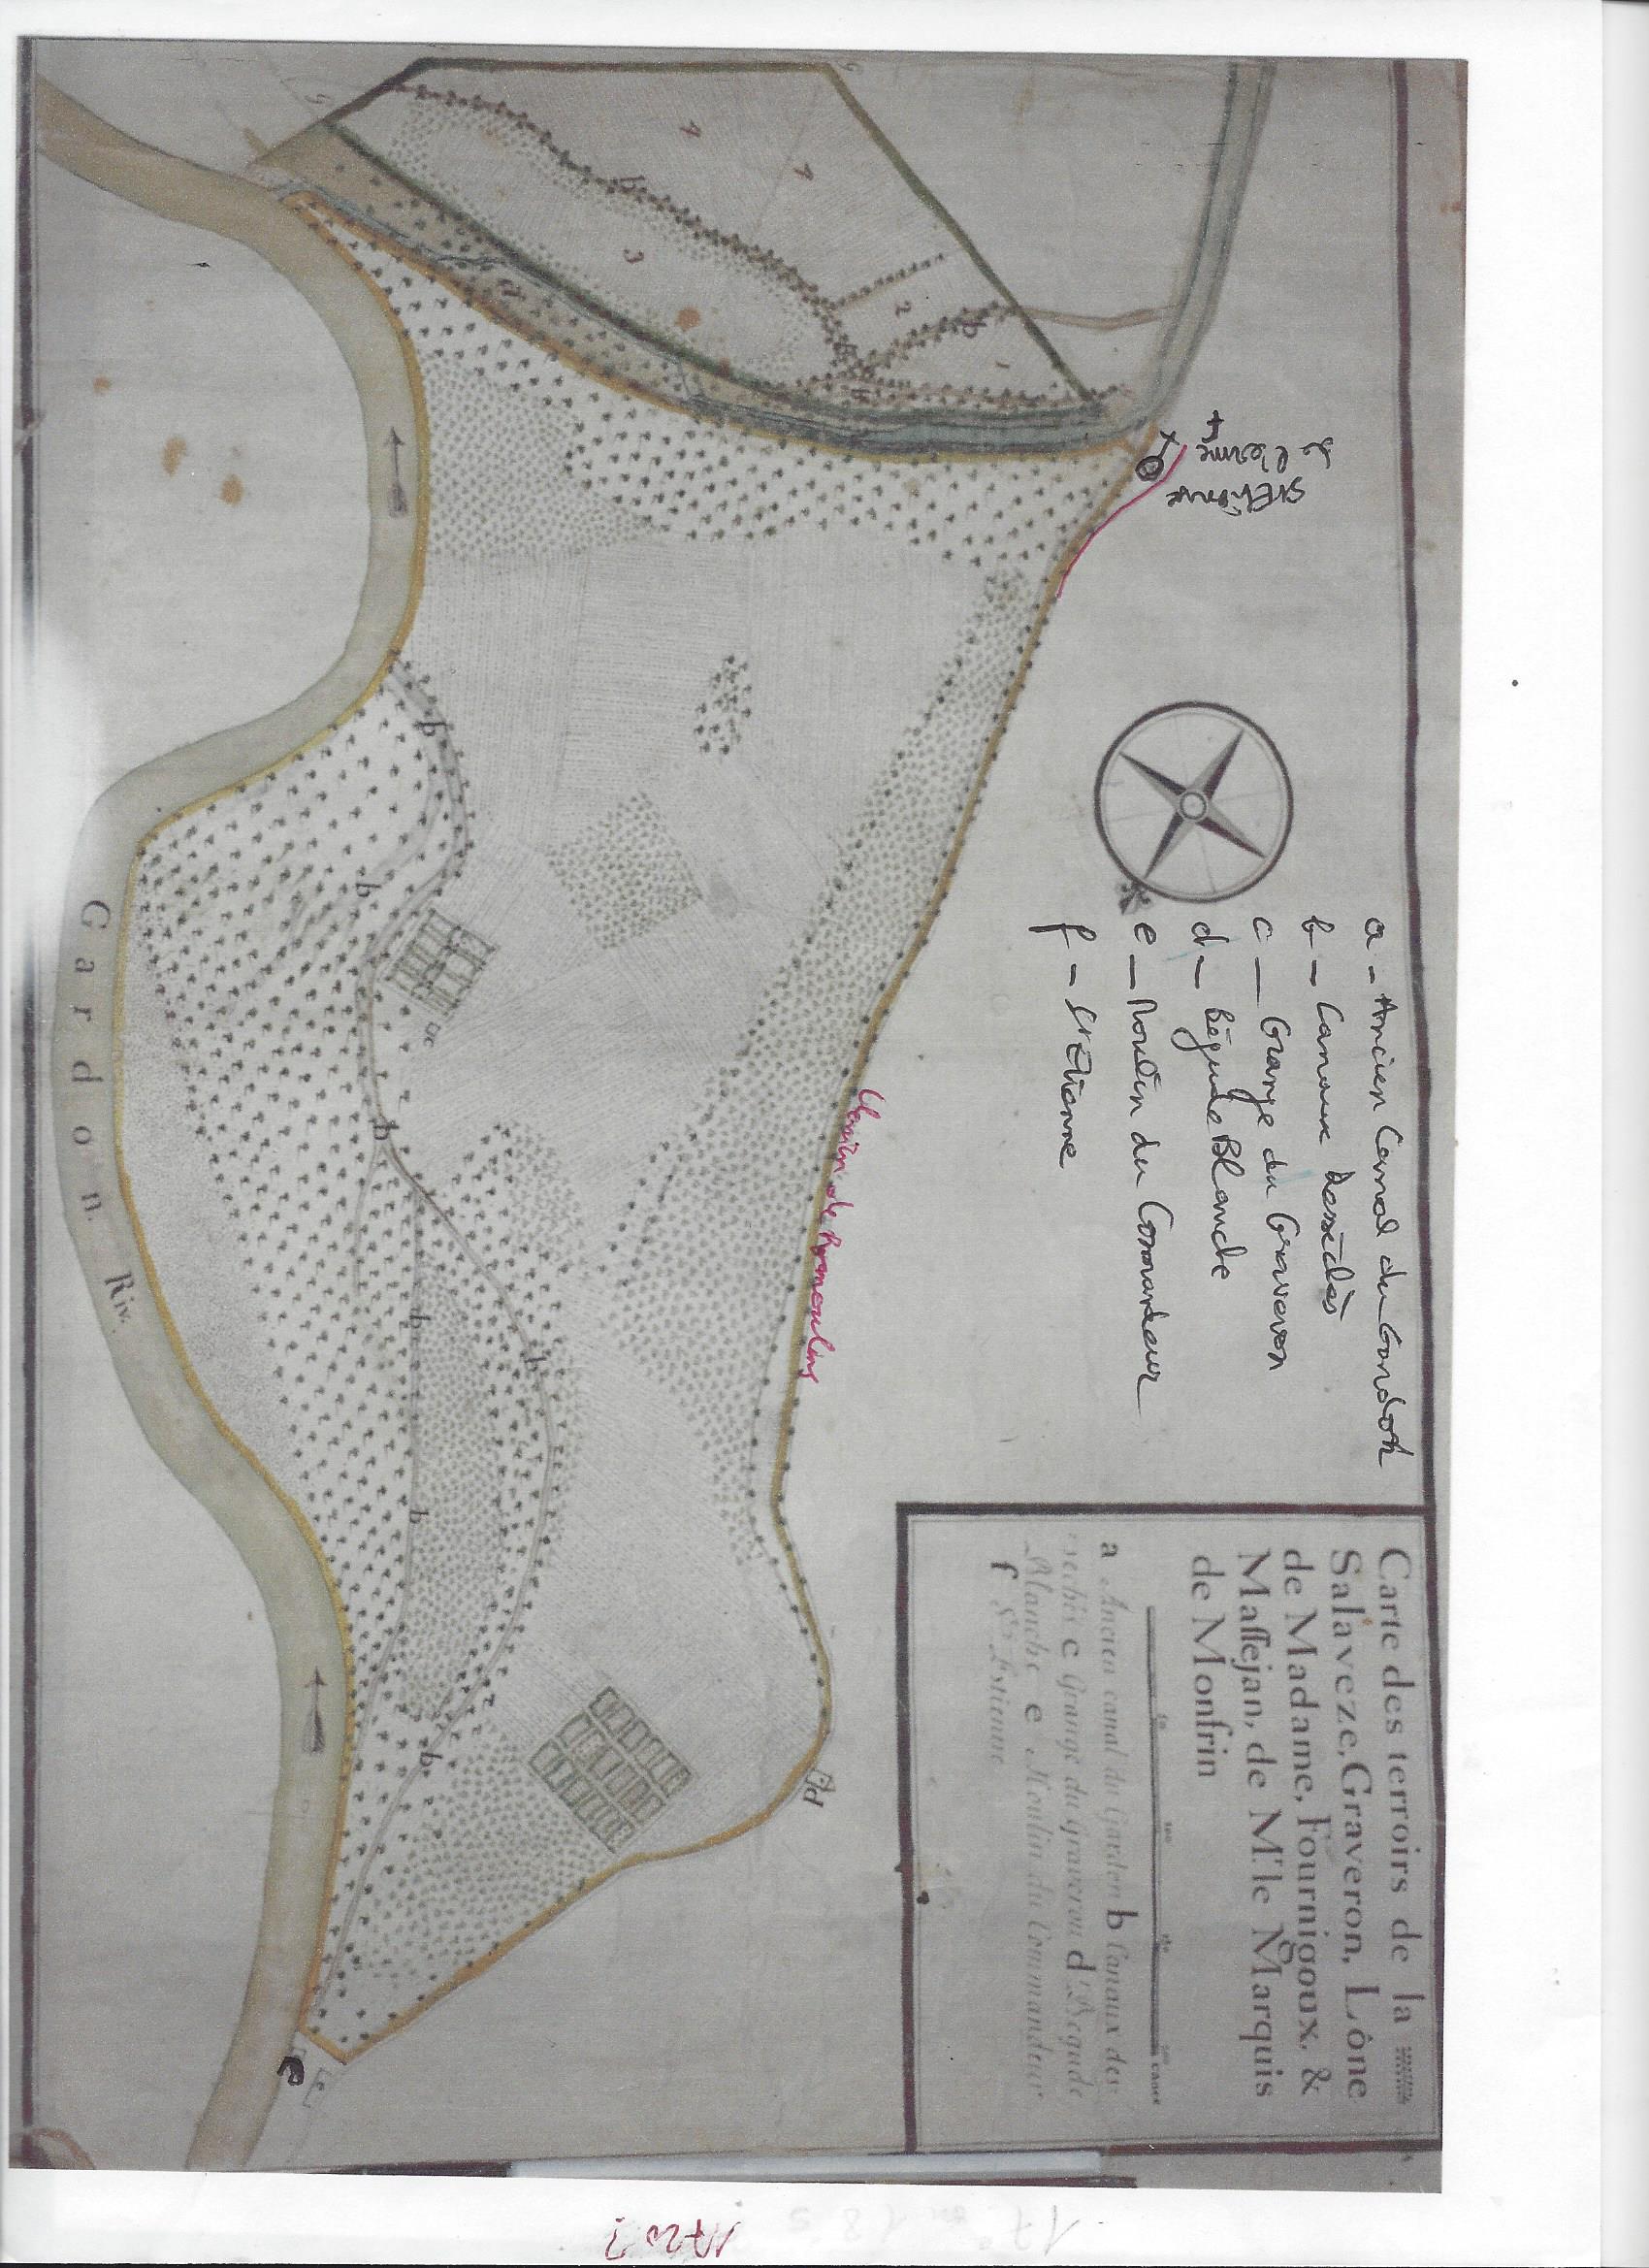 Carte des terroirs de la
Salaveze, Graveron, Lône
de Madame, Fournigoux, &
Massejan, de M.r le Marquis
de Monfrin
50 100 150 200 canes
a Ancien canal du Gardon b Canaux des-
sechés c Grange du Graveron d Begude
Blanche e Moulin du Commandeur
f St Estienne
a - Ancien Canal du Gardon
b - Canaux Desséchés
c - Grange du Graveron
d - Bégude Blanche
e - Moulin du Commandeur
f - St Etienne
St Etienne
de l'erme
f
Chemin de Remoulins
Gardon Riv.
a
b
b
b
b
b
b
b
b
b
c
d
e
e
1
2
3
4
4
17e ou 18e s
1720 ?